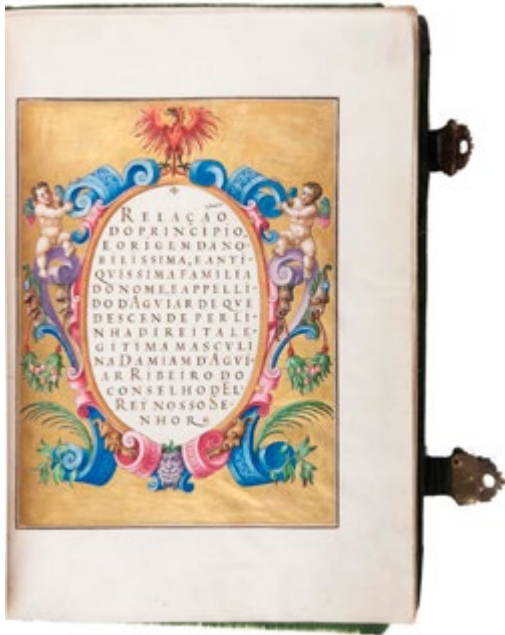 RELAÇAO
DOPRINCIPIO,
EORIGEMDANO-
BILISSIMA, EANTI-
QVISSIMAFAMILIA
DONOME, EAPPELLI-
DODAGVIARDEQVE
DESCENDEPERLI-
NHADIREITALE-
GITIMAMASCVLI
NADAMIAMDAGVI-
ARRIBEIRODO
CONSELHODEL
REYNOSSOSE-
NHOR